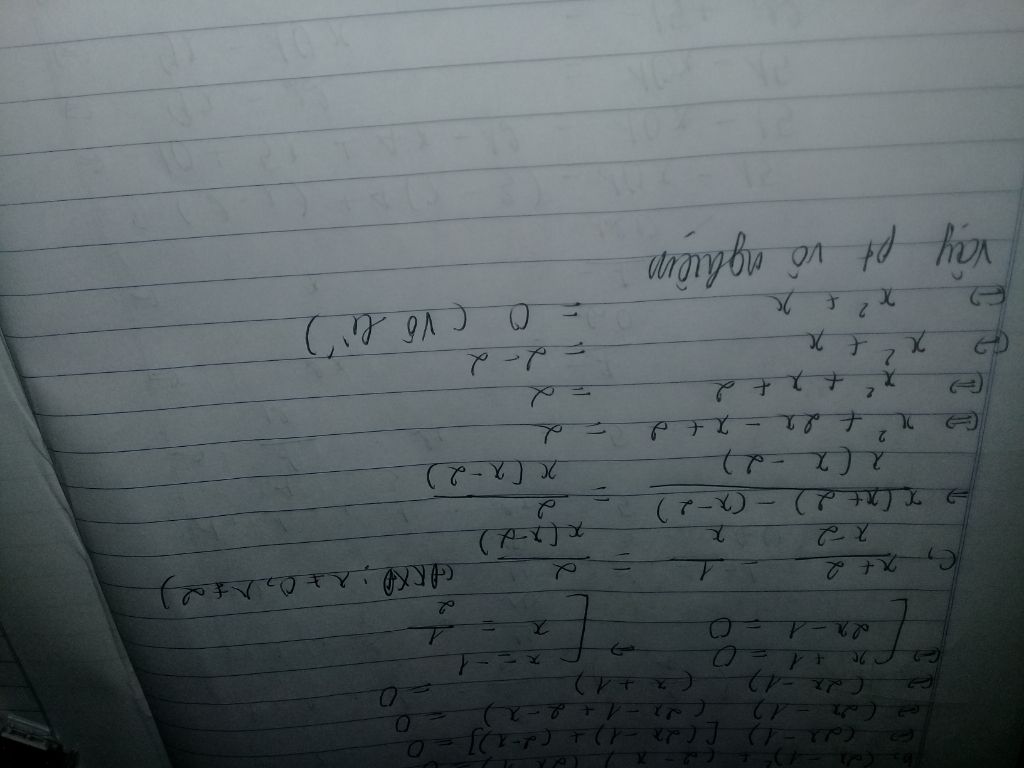 b, (2x - 1)² + (2 - x)(2x - 1) = 0
⇔ (2x - 1) [(2x - 1) + (2 - x)] = 0
⇔ (2x - 1) (2x - 1 + 2 - x) = 0
⇔ (2x - 1) (x + 1) = 0
⇔ [ x + 1 = 0 ⇒ [ x = -1
2x - 1 = 0 x = 1/2
c, (x + 2)/(x - 2) - 1/x = 2/(x(x - 2)) (ĐKXĐ: x ≠ 0, x ≠ 2)
⇒ (x(x + 2) - (x - 2))/(x(x - 2)) = 2/(x(x - 2))
⇔ x² + 2x - x + 2 = 2
⇔ x² + x + 2 = 2
⇔ x² + x = 2 - 2
⇔ x² + x = 0 (vô lí)
vậy pt vô nghiệm